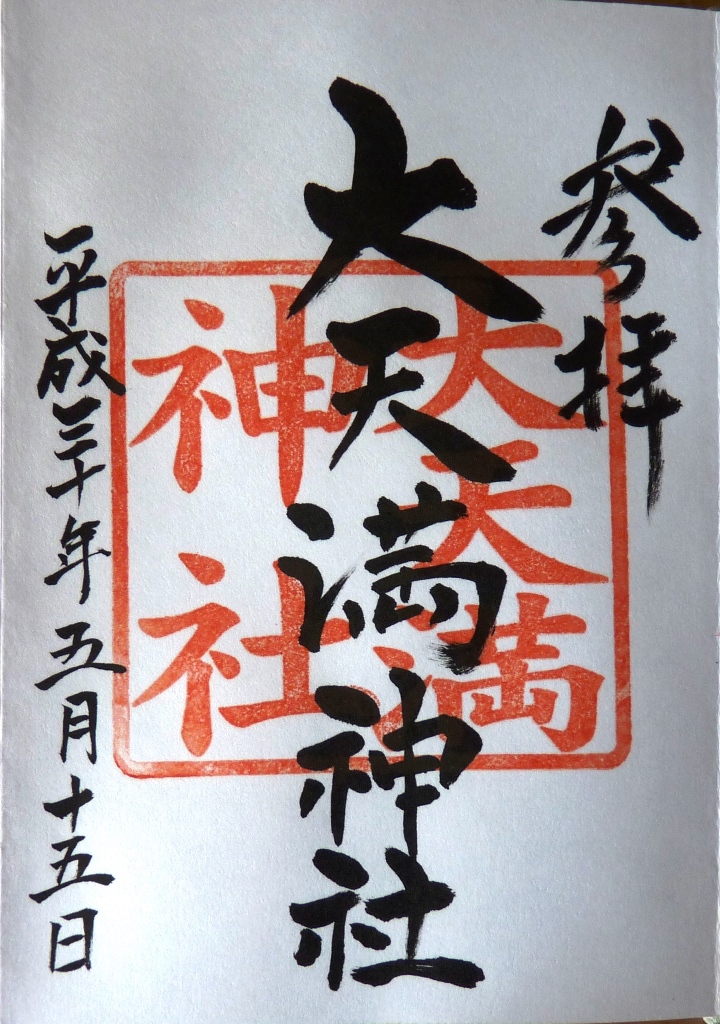 参拝
大天満神社
大天満
神社
平成三十年五月十五日